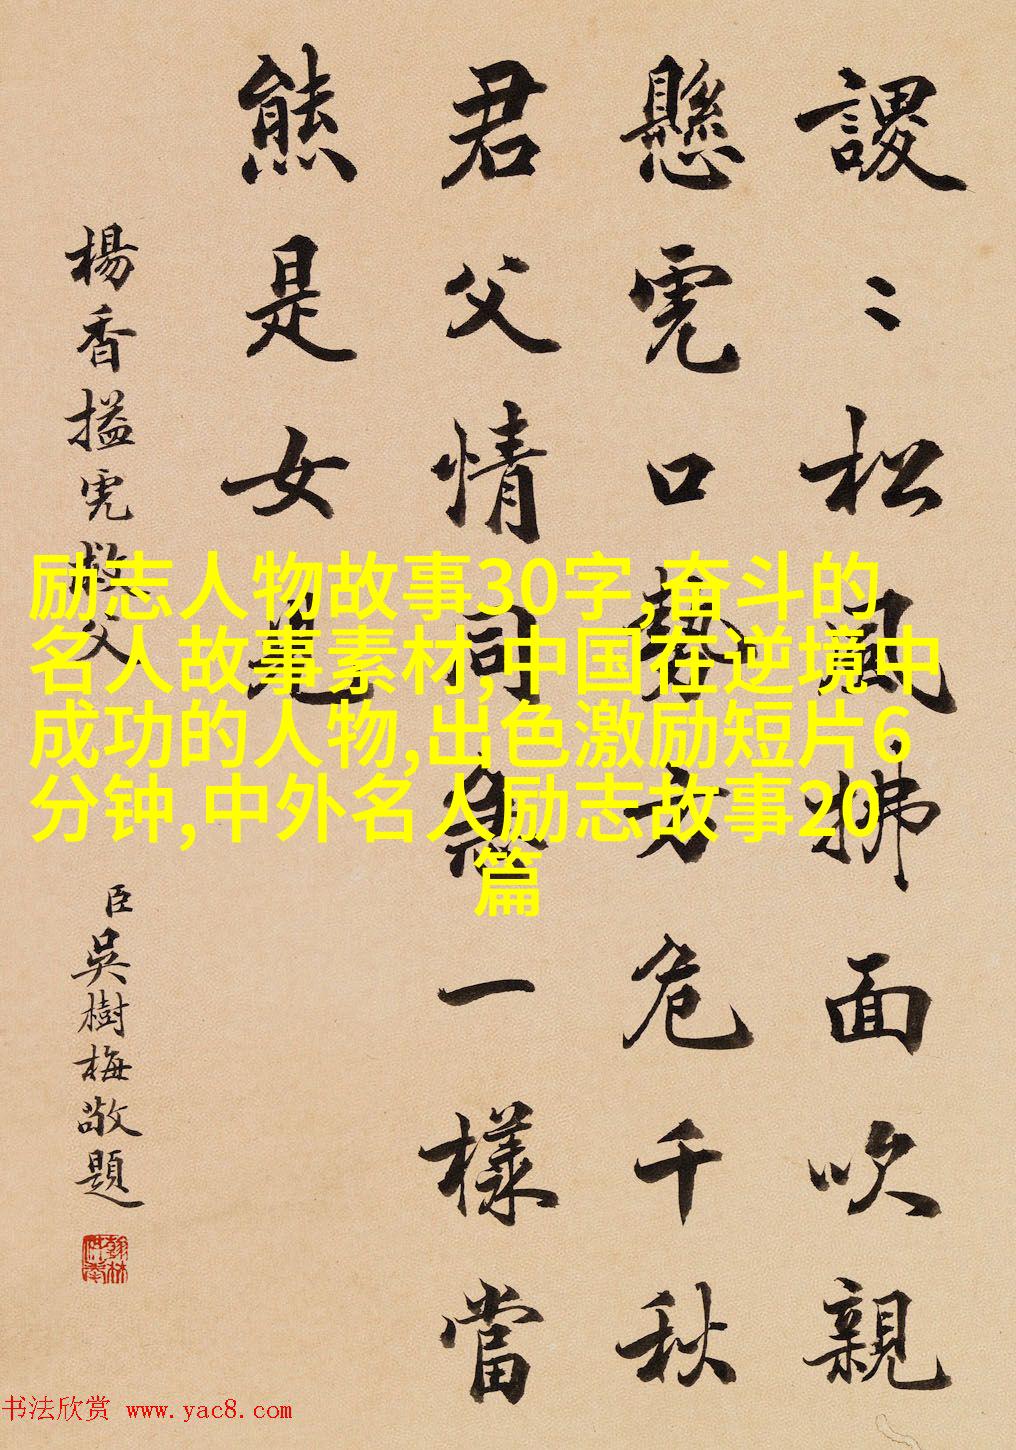 謖〻松風拂面吹親
懸虎口勢方危千秋
君父情同急一樣當
熊是女兒
楊香搤虎救父
臣吳樹梅敬題
励志人物故事30字,奋斗的
名人故事素材,中国在逆境中
成功的人物,出色激励短片6
分钟,中外名人励志故事20
篇
书法欣赏 www.yac8.com